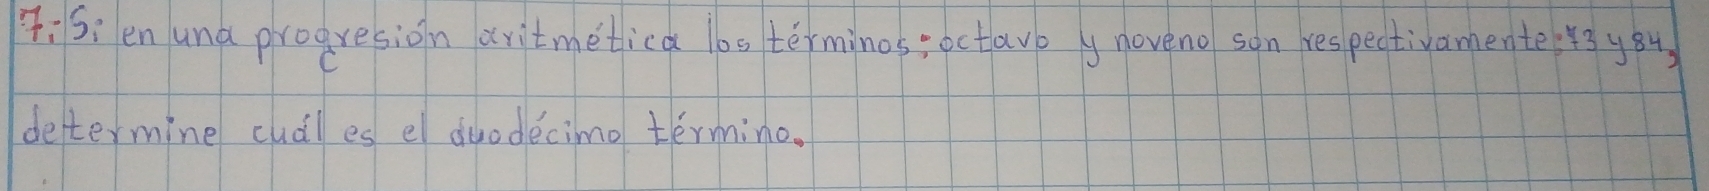 7. Si en una progresión aritmética los términos: octavo y noveno son respectivamente: 73 y 84,
determine cuál es el duodécimo término.